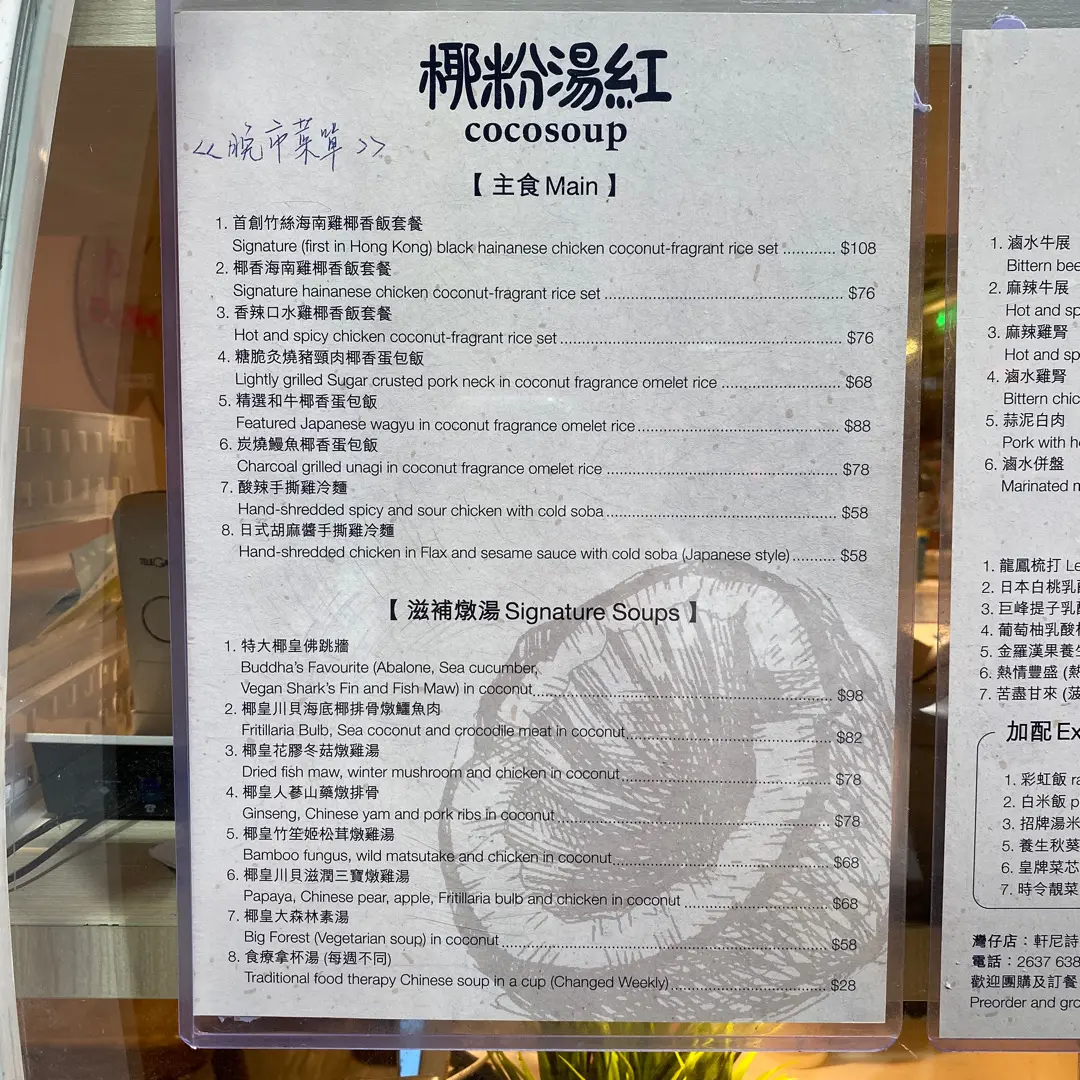 椰粉湯紅
cocosoup
<<晚市菜單>>
【 主食 Main 】
1. 首創竹絲海南雞椰香飯套餐
Signature (first in Hong Kong) black hainanese chicken coconut-fragrant rice set ............ $108
2. 椰香海南雞椰香飯套餐
Signature hainanese chicken coconut-fragrant rice set ............ $76
3. 香辣口水雞椰香飯套餐
Hot and spicy chicken coconut-fragrant rice set ............ $76
4. 糖脆灸燒豬頸肉椰香蛋包飯
Lightly grilled Sugar crusted pork neck in coconut fragrance omelet rice ............ $68
5. 精選和牛椰香蛋包飯
Featured Japanese wagyu in coconut fragrance omelet rice ............ $88
6. 炭燒鰻魚椰香蛋包飯
Charcoal grilled unagi in coconut fragrance omelet rice ............ $78
7. 酸辣手撕雞冷麵
Hand-shredded spicy and sour chicken with cold soba ............ $58
8. 日式胡麻醬手撕雞冷麵
Hand-shredded chicken in Flax and sesame sauce with cold soba (Japanese style) .......... $58
【 滋補燉湯 Signature Soups 】
1. 特大椰皇佛跳牆
Buddha's Favourite (Abalone, Sea cucumber,
Vegan Shark's Fin and Fish Maw) in coconut ............ $98
2. 椰皇川貝海底椰排骨燉鱷魚肉
Fritillaria Bulb, Sea coconut and crocodile meat in coconut ............ $82
3. 椰皇花膠冬菇燉雞湯
Dried fish maw, winter mushroom and chicken in coconut ............ $78
4. 椰皇人蔘山藥燉排骨
Ginseng, Chinese yam and pork ribs in coconut ............ $78
5. 椰皇竹笙姬松茸燉雞湯
Bamboo fungus, wild matsutake and chicken in coconut ............ $68
6. 椰皇川貝滋潤三寶燉雞湯
Papaya, Chinese pear, apple, Fritillaria bulb and chicken in coconut ............ $68
7. 椰皇大森林素湯
Big Forest (Vegetarian soup) in coconut ............ $58
8. 食療拿杯湯 (每週不同)
Traditional food therapy Chinese soup in a cup (Changed Weekly) ............ $28
1. 滷水牛展
Bittern bee
2. 麻辣牛展
Hot and sp
3. 麻辣雞腎
Hot and sp
4. 滷水雞腎
Bittern chic
5. 蒜泥白肉
Pork with h
6. 滷水併盤
Marinated m
1. 龍鳳梳打 Le
2. 日本白桃乳
3. 巨峰提子乳
4. 葡萄柚乳酸
5. 金羅漢果養生
6. 熱情豐盛 (熱
7. 苦盡甘來 (菠
加配 Ex
1. 彩虹飯 ra
2. 白米飯 p
3. 招牌湯米
5. 養生秋葵
6. 皇牌菜芯
7. 時令靚菜
灣仔店：軒尼詩
電話：2637 638
歡迎團購及訂餐
Preorder and gro